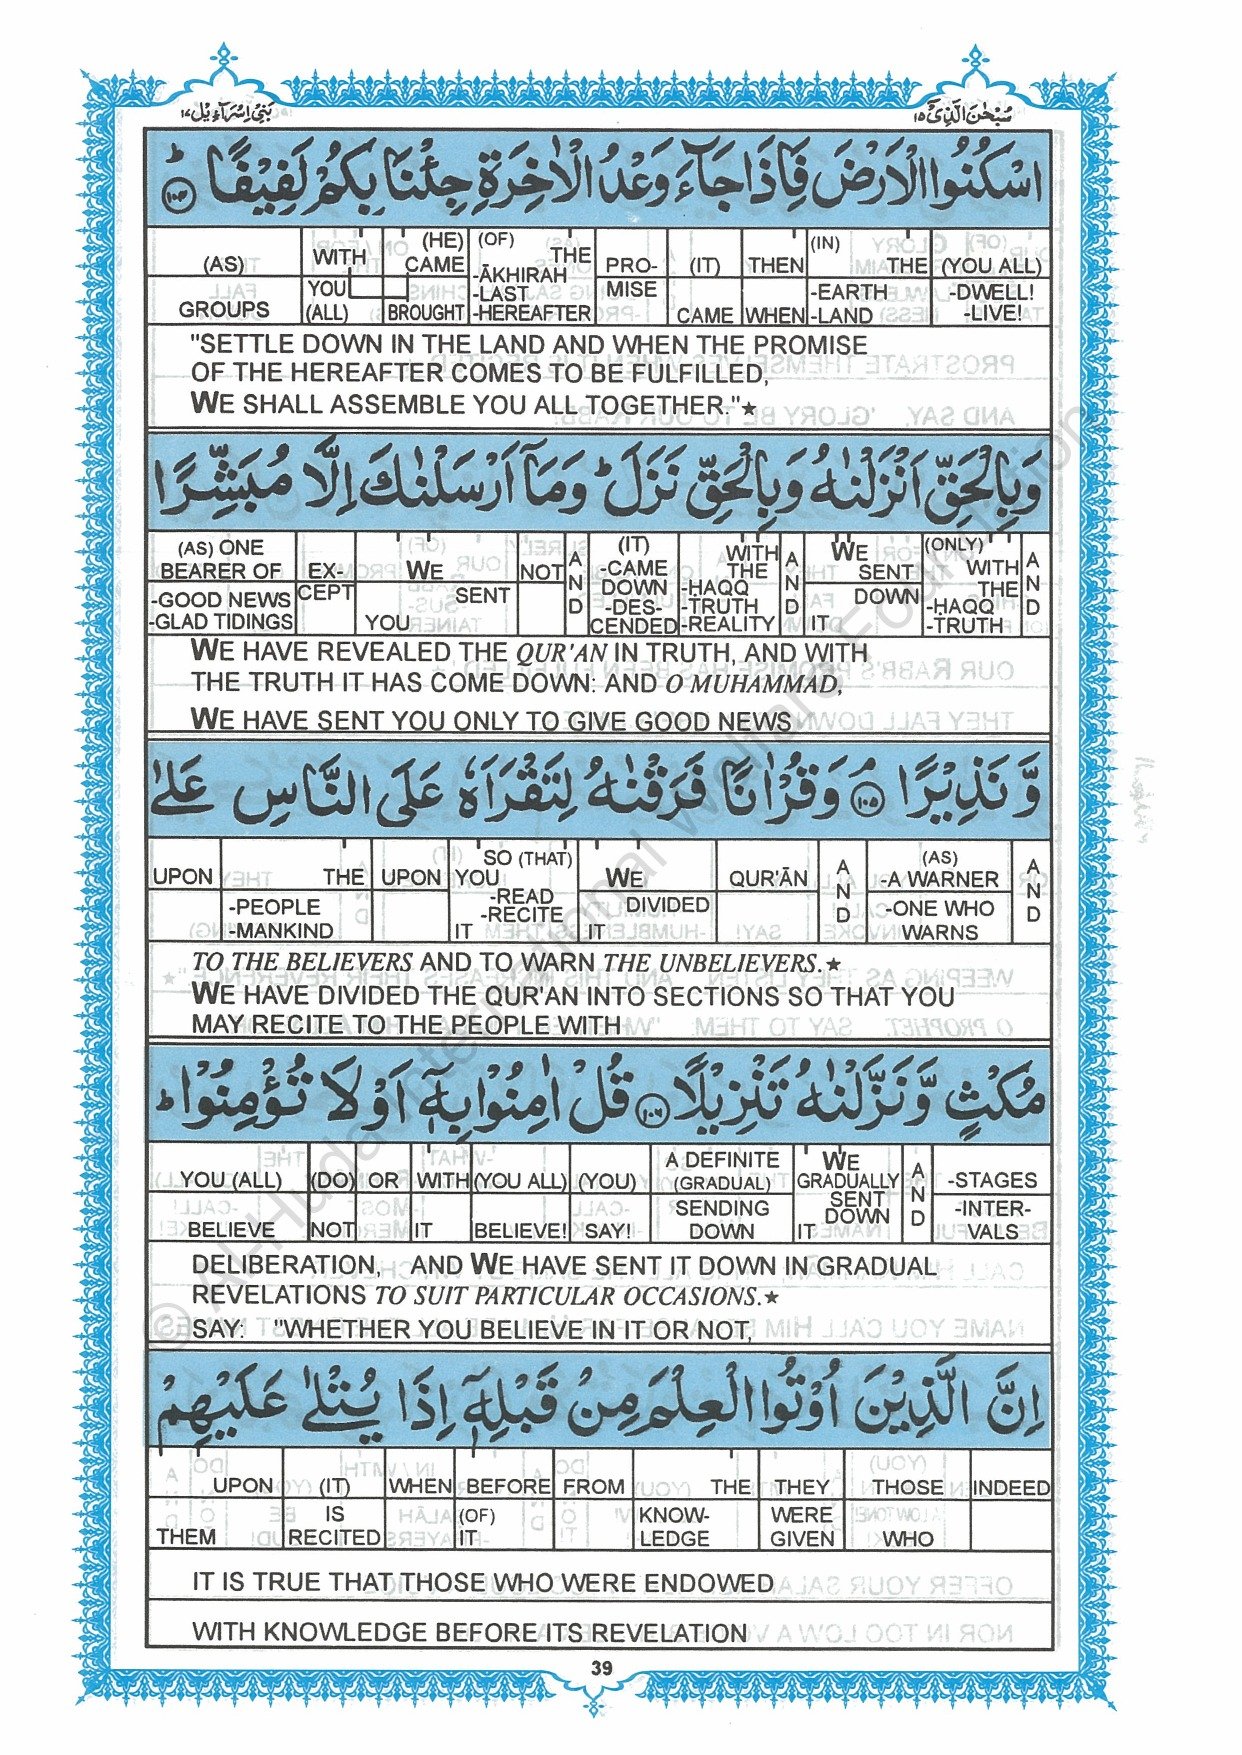 بَنِيْٓ اِسْرَآءِيْل ١٧
سُبْحٰنَ الَّذِيْٓ ١٥
اسْكُنُوا الْاَرْضَ فَاِذَا جَآءَ وَعْدُ الْاٰخِرَةِ جِئْنَا بِكُمْ لَفِيْفًا ؕ ١٠٤
(AS) WITH (HE) CAME (OF) THE PRO- (IT) THEN (IN) THE (YOU ALL)
GROUPS YOU (ALL) BROUGHT -ĀKHIRAH -LAST -HEREAFTER MISE CAME WHEN -EARTH -LAND -DWELL! -LIVE!
"SETTLE DOWN IN THE LAND AND WHEN THE PROMISE
OF THE HEREAFTER COMES TO BE FULFILLED,
WE SHALL ASSEMBLE YOU ALL TOGETHER."★
وَبِالْحَقِّ اَنْزَلْنٰهُ وَبِالْحَقِّ نَزَلَ ؕ وَمَآ اَرْسَلْنٰكَ اِلَّا مُبَشِّرًا
(AS) ONE BEARER OF EX- WE NOT AND (IT) -CAME DOWN WITH THE AND WE SENT (ONLY) WITH THE AND
-GOOD NEWS -GLAD TIDINGS CEPT YOU SENT -DES- CENDED -HAQQ -TRUTH -REALITY IT DOWN -ḤAQQ -TRUTH
WE HAVE REVEALED THE QUR'AN IN TRUTH, AND WITH
THE TRUTH IT HAS COME DOWN: AND O MUHAMMAD,
WE HAVE SENT YOU ONLY TO GIVE GOOD NEWS
وَّ نَذِيْرًا ۘ ١٠٥ وَقُرْاٰنًا فَرَقْنٰهُ لِتَقْرَاَهٗ عَلَى النَّاسِ عَلٰى
UPON THE UPON SO (THAT) YOU WE QUR'ĀN AND (AS) -A WARNER AND
-PEOPLE -MANKIND -READ -RECITE IT DIVIDED IT -ONE WHO WARNS
TO THE BELIEVERS AND TO WARN THE UNBELIEVERS.★
WE HAVE DIVIDED THE QUR'AN INTO SECTIONS SO THAT YOU
MAY RECITE TO THE PEOPLE WITH
مُكْثٍ وَّنَزَّلْنٰهُ تَنْزِيْلًا ١٠٦ قُلْ اٰمِنُوْا بِهٖٓ اَوْ لَا تُؤْمِنُوْا ؕ
YOU (ALL) (DO) OR WITH (YOU ALL) (YOU) A DEFINITE (GRADUAL) WE GRADUALLY AND -STAGES
BELIEVE NOT IT BELIEVE! SAY! SENDING DOWN SENT DOWN IT -INTER- VALS
DELIBERATION, AND WE HAVE SENT IT DOWN IN GRADUAL
REVELATIONS TO SUIT PARTICULAR OCCASIONS.★
SAY: "WHETHER YOU BELIEVE IN IT OR NOT,
اِنَّ الَّذِيْنَ اُوْتُوا الْعِلْمَ مِنْ قَبْلِهٖٓ اِذَا يُتْلٰى عَلَيْهِمْ
UPON (IT) WHEN BEFORE FROM THE THEY THOSE INDEED
THEM IS RECITED (OF) IT KNOW- LEDGE WERE GIVEN WHO
IT IS TRUE THAT THOSE WHO WERE ENDOWED
WITH KNOWLEDGE BEFORE ITS REVELATION
39
© Al-Huda International Welfare Foundation